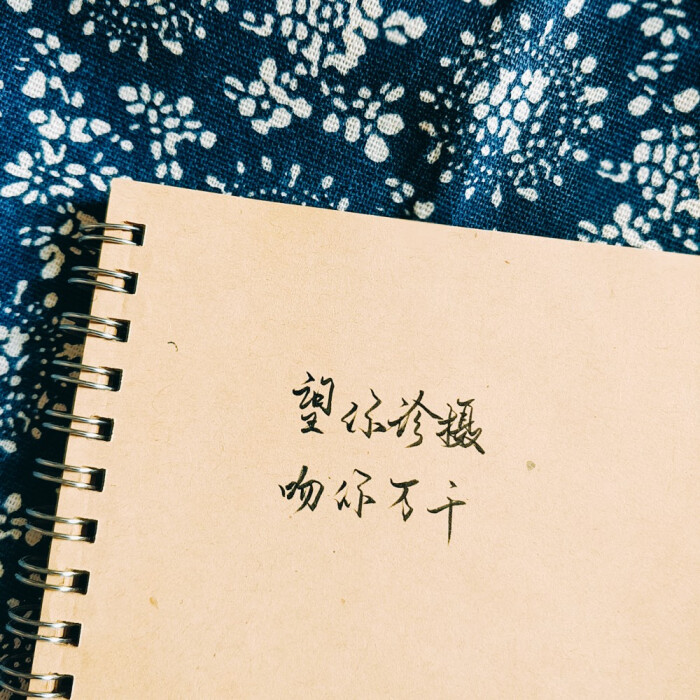 望你珍摄
吻你万千